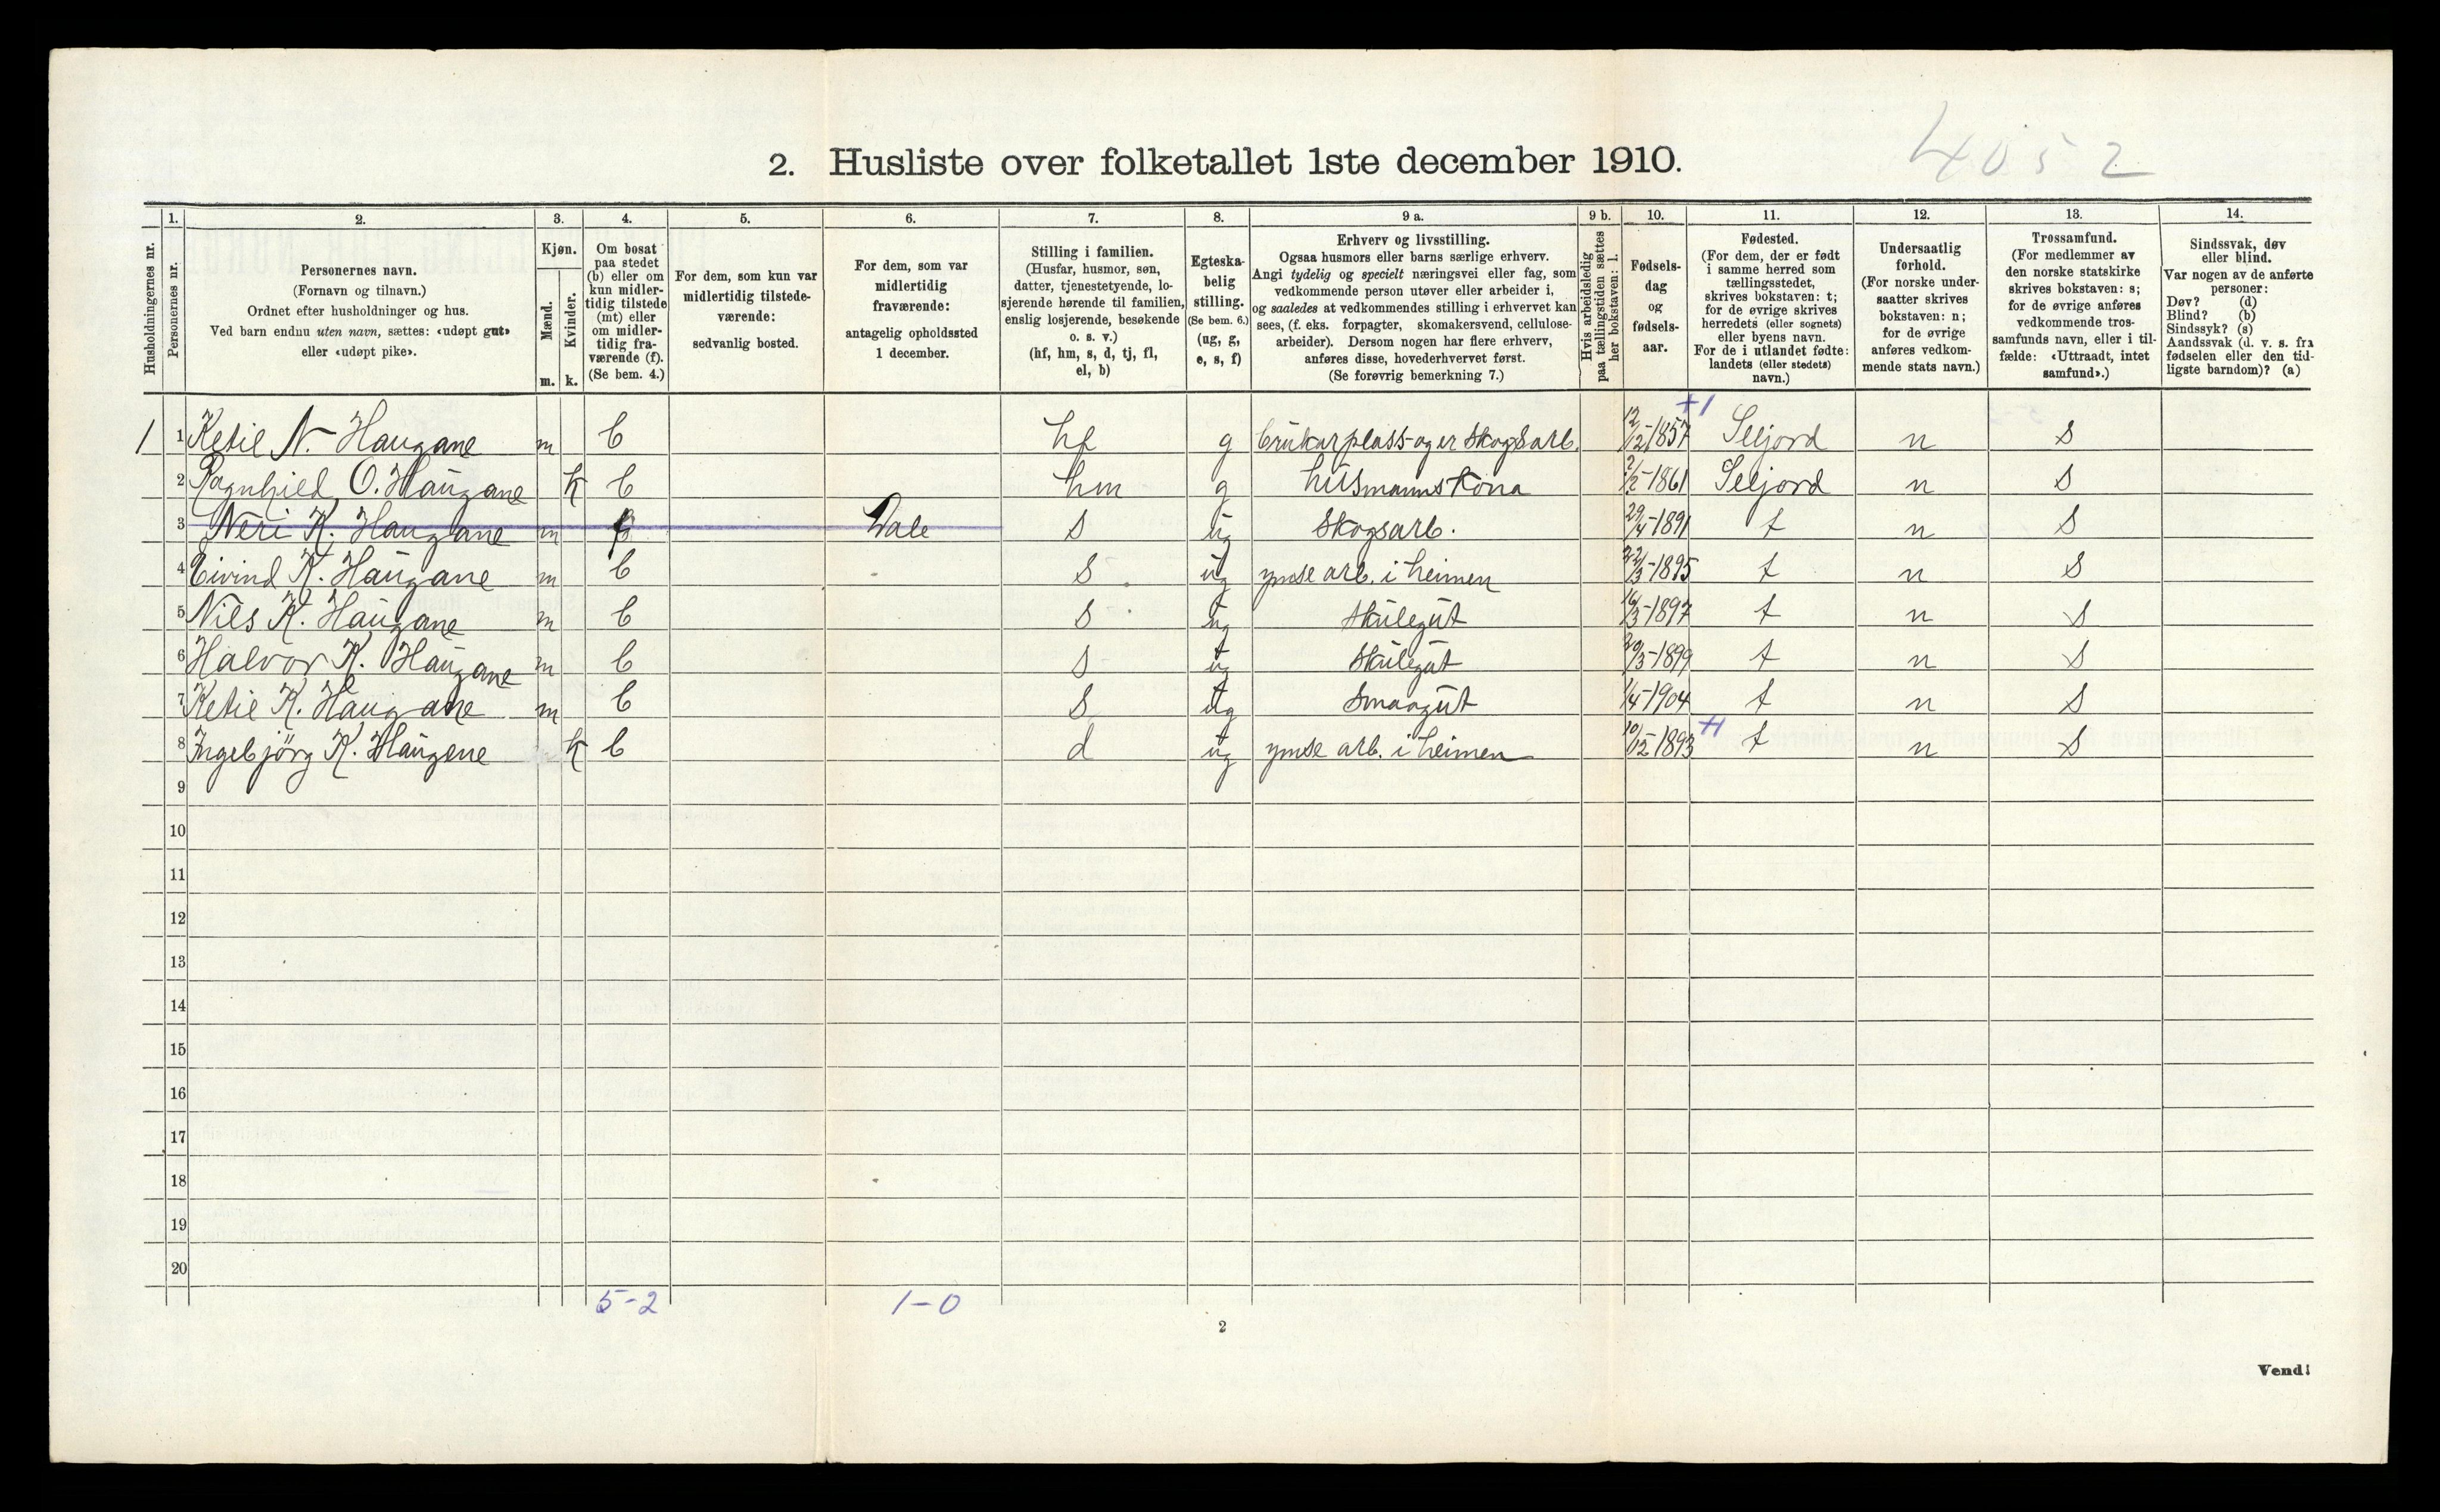 4052
2. Husliste over folketallet 1ste december 1910.
Husholdningernes nr.
1.
Personernes nr.
2.
Personernes navn.
(Fornavn og tilnavn.)
Ordnet efter husholdninger og hus.
Ved barn endnu uten navn, sættes: «udøpt gut»
eller «udøpt pike».
3.
Kjøn.
Mænd.
m.
Kvinder.
k.
4.
Om bosat
paa stedet
(b) eller om
kun midler-
tidig tilstede
(mt) eller
om midler-
tidig fra-
værende (f).
(Se bem. 4.)
5.
For dem, som kun var
midlertidig tilstede-
værende:
sedvanlig bosted.
6.
For dem, som var
midlertidig
fraværende:
antagelig opholdssted
1 december.
7.
Stilling i familien.
(Husfar, husmor, søn,
datter, tjenestetyende, lo-
sjerende hørende til familien,
enslig losjerende, besøkende
o. s. v.)
(hf, hm, s, d, tj, fl,
el, b)
8.
Egteska-
belig
stilling.
(Se bem. 6.)
(ug, g,
e, s, f)
9 a.
Erhverv og livsstilling.
Ogsaa husmors eller barns særlige erhverv.
Angi tydelig og specielt næringsvei eller fag, som
vedkommende person utøver eller arbeider i,
og saaledes at vedkommendes stilling i erhvervet kan
sees, (f. eks. forpagter, skomakersvend, cellulose-
arbeider). Dersom nogen har flere erhverv,
anføres disse, hovederhvervet først.
(Se forøvrig bemerkning 7.)
9 b.
Hvis arbeidsledig
paa tællingstiden sættes
her bokstaven: l.
10.
Fødsels-
dag
og
fødsels-
aar.
11.
Fødested.
(For dem, der er født
i samme herred som
tællingsstedet,
skrives bokstaven: t;
for de øvrige skrives
herredets (eller sognets)
eller byens navn.
For de i utlandet fødte:
landets (eller stedets)
navn.)
12.
Undersaatlig
forhold.
(For norske under-
saatter skrives
bokstaven: n;
for de øvrige
anføres vedkom-
mende stats navn.)
13.
Trossamfund.
(For medlemmer av
den norske statskirke
skrives bokstaven: s;
for de øvrige anføres
vedkommende tros-
samfunds navn, eller i til-
fælde: «Uttraadt, intet
samfund».)
14.
Sindssvak, døv
eller blind.
Var nogen av de anførte
personer:
Døv? (d)
Blind? (b)
Sindssyk? (s)
Aandssvak (d. v. s. fra
fødselen eller den tid-
ligste barndom)? (a)
1 1 Ketil N. Haugane m b hf g brukar plass og er skogsarb. 12/12-1857 +1 Seljord n s
2 Ragnhild O. Haugane k b hm g husmannskona 2/2-1861 Seljord n s
3 Neri K. Haugane m f Dale s ug skogsarb. 29/4-1891 t n s
4 Eivind K. Haugane m b s ug ymse arb. i heimen 22/3-1895 t n s
5 Nils K. Haugane m b s ug skulegut 16/3-1897 t n s
6 Halvor K. Haugane m b s ug skulegut 20/3-1899 t n s
7 Ketil K. Haugane m b s ug smaagut 1/4-1904 t n s
8 Ingebjörg K. Haugene k b d ug ymse arb. i heimen 10/12-1893 +1 t n s
9
10
11
12
13
14
15
16
17
18
19
20
5-2 1-0
2
Vend!